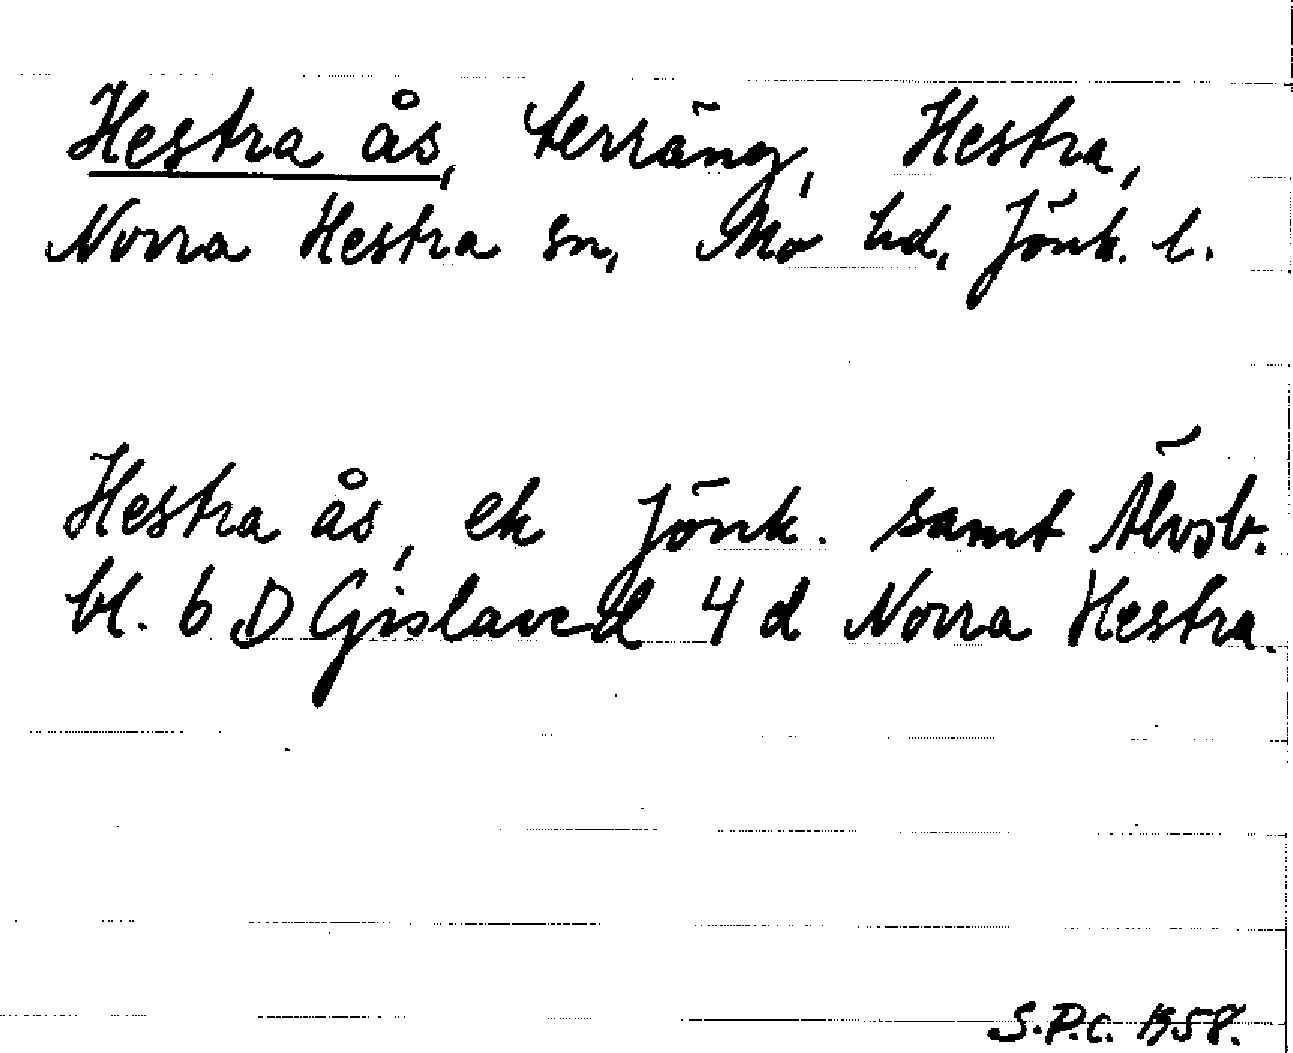 Hestra ås, terräng, Hestra,
Norra Hestra sn, Mo hd, Jönk. l.
Hestra ås, ek Jönk. samt Älvsb.
bl. 6 D Gislaved 4 d Norra Hestra.
S.P.C. 1958.